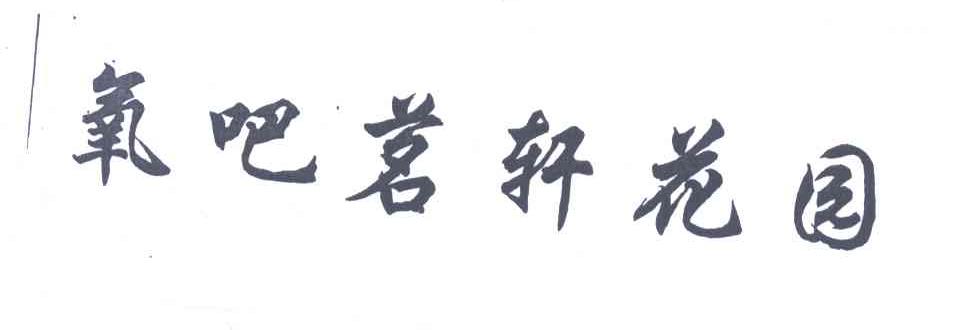 氧吧茗轩花园